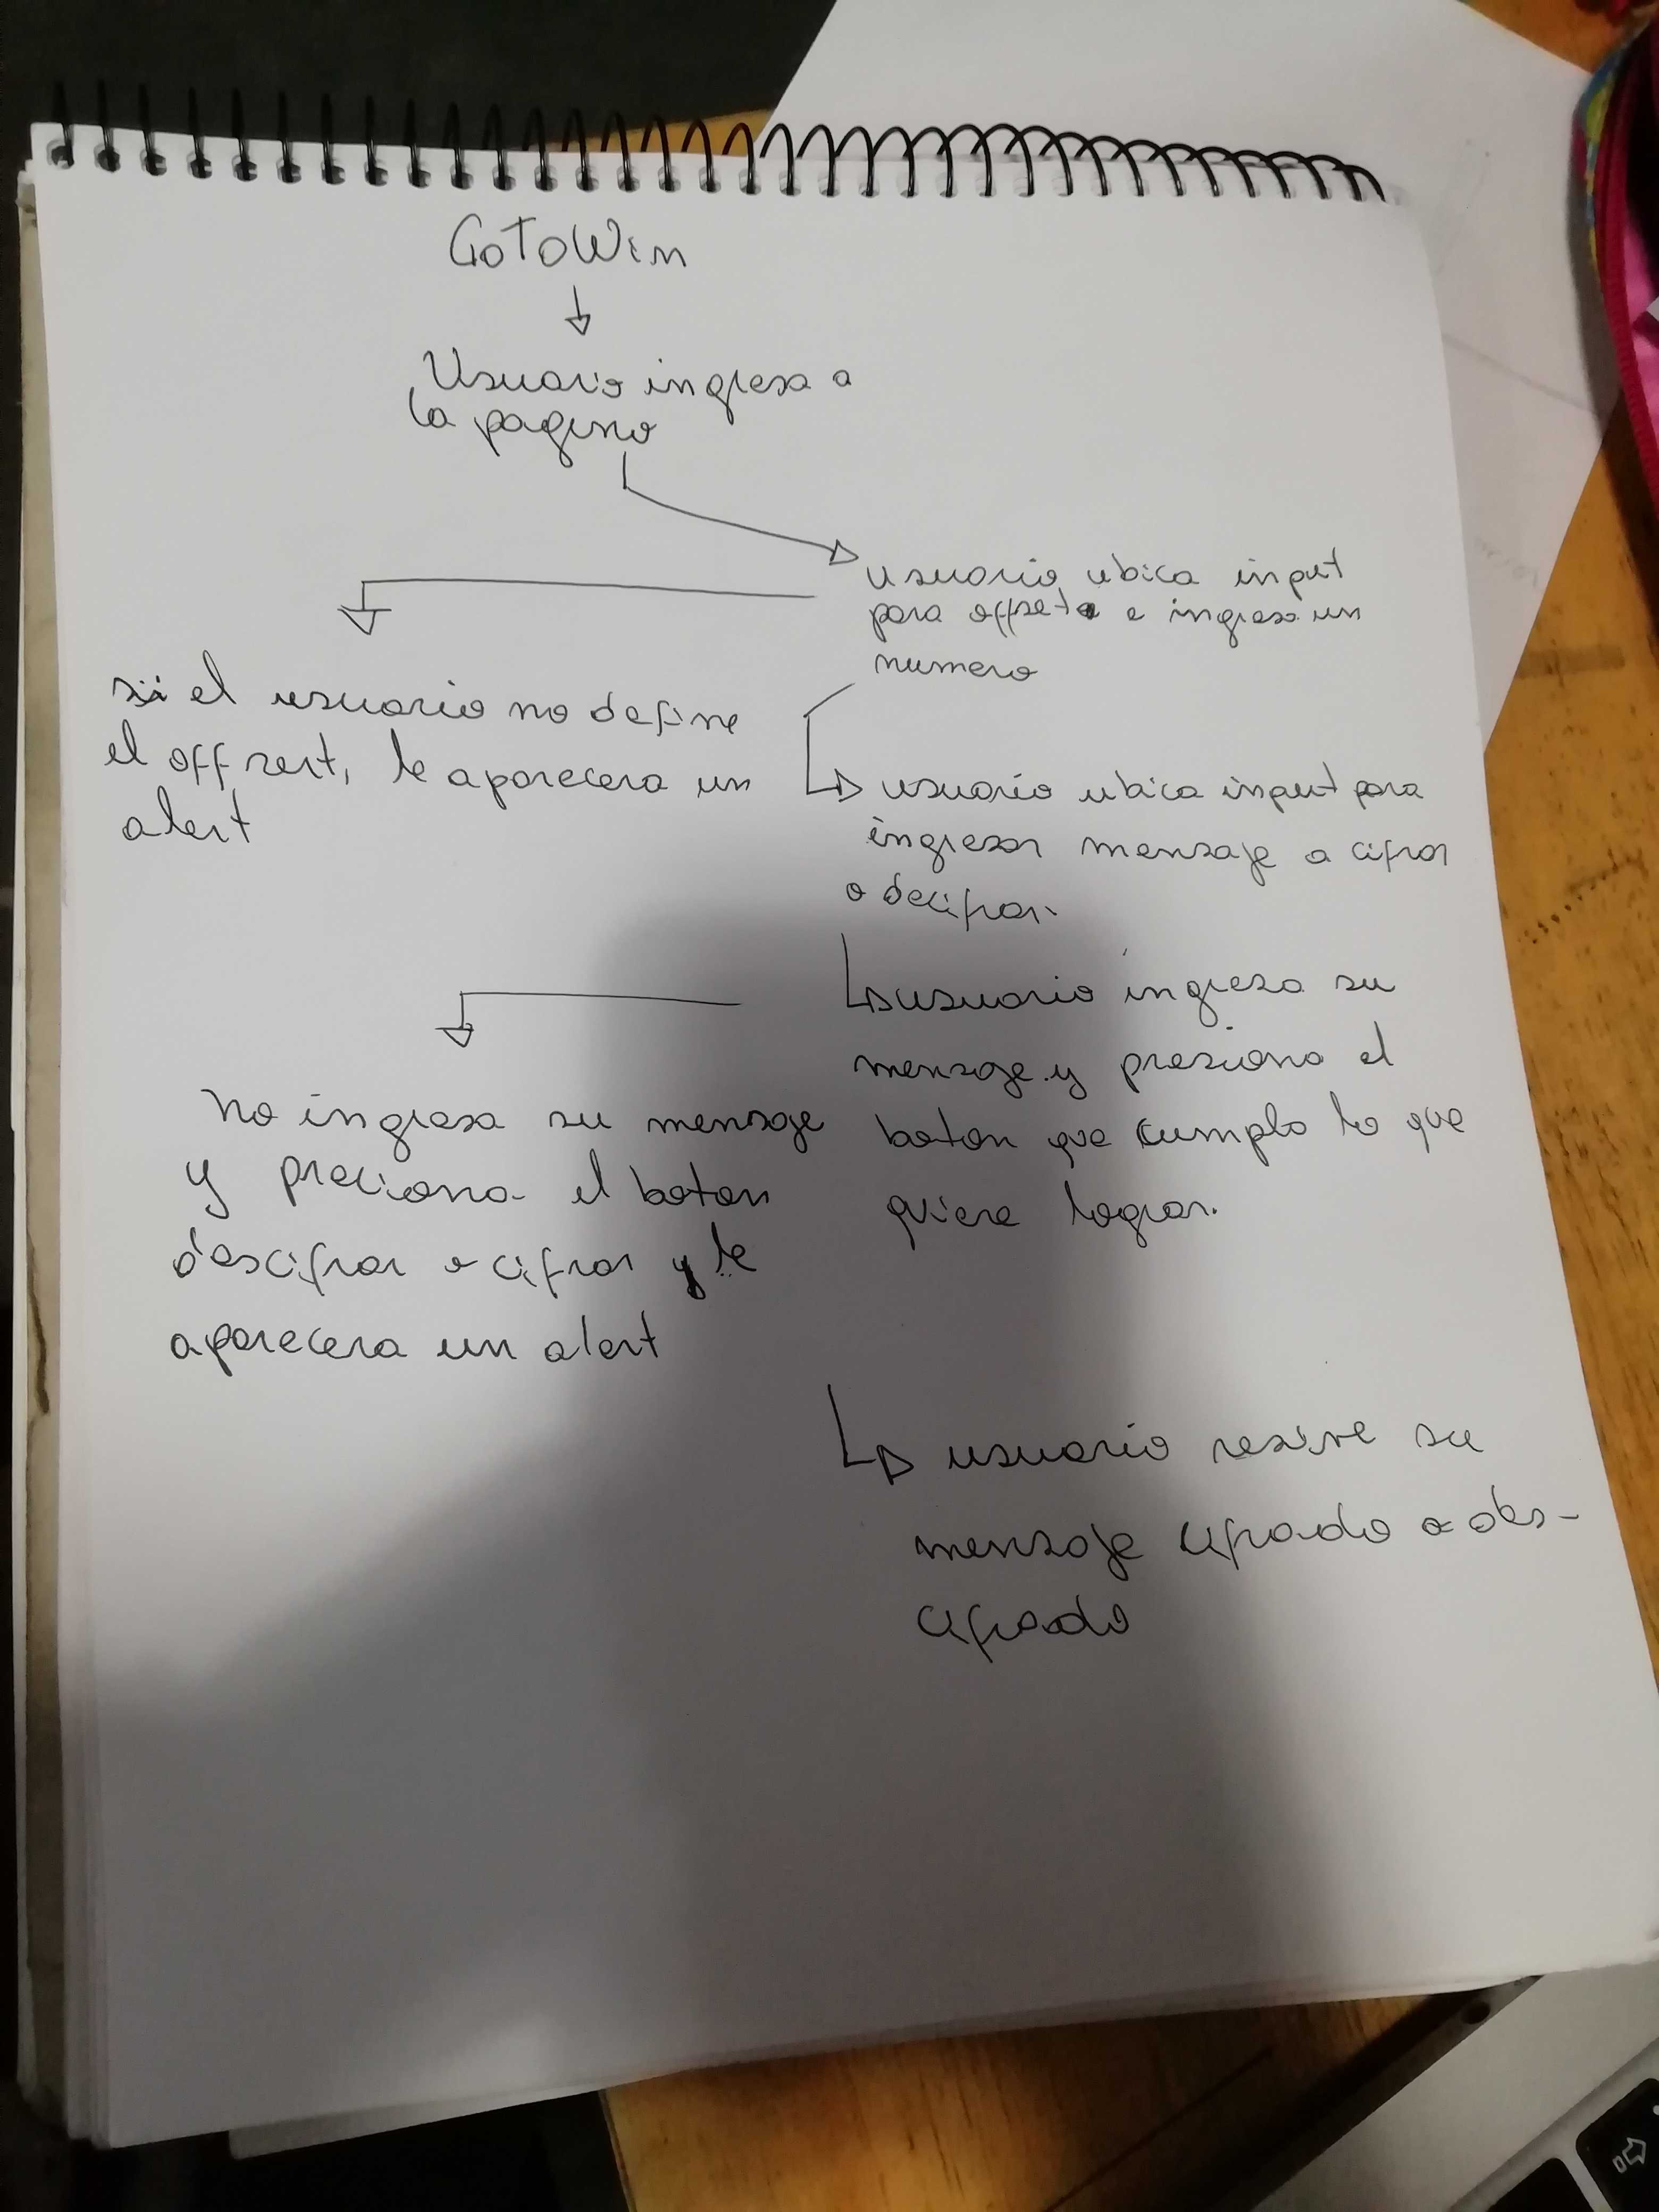 GoToWin
Usuario ingresa a
la pagina
usuario ubica input
para offset e ingresa un
numero
si el usuario no define
el offset, le aparecera un
alert
usuario ubica input para
ingresar mensaje a cifrar
o decifrar.
usuario ingresa su
mensaje y presiona el
boton que cumpla lo que
quiere lograr.
No ingresa su mensaje
y preciona el boton
descifrar o cifrar y le
aparecera un alert
usuario resive su
mensaje cifrado o des-
cifrado